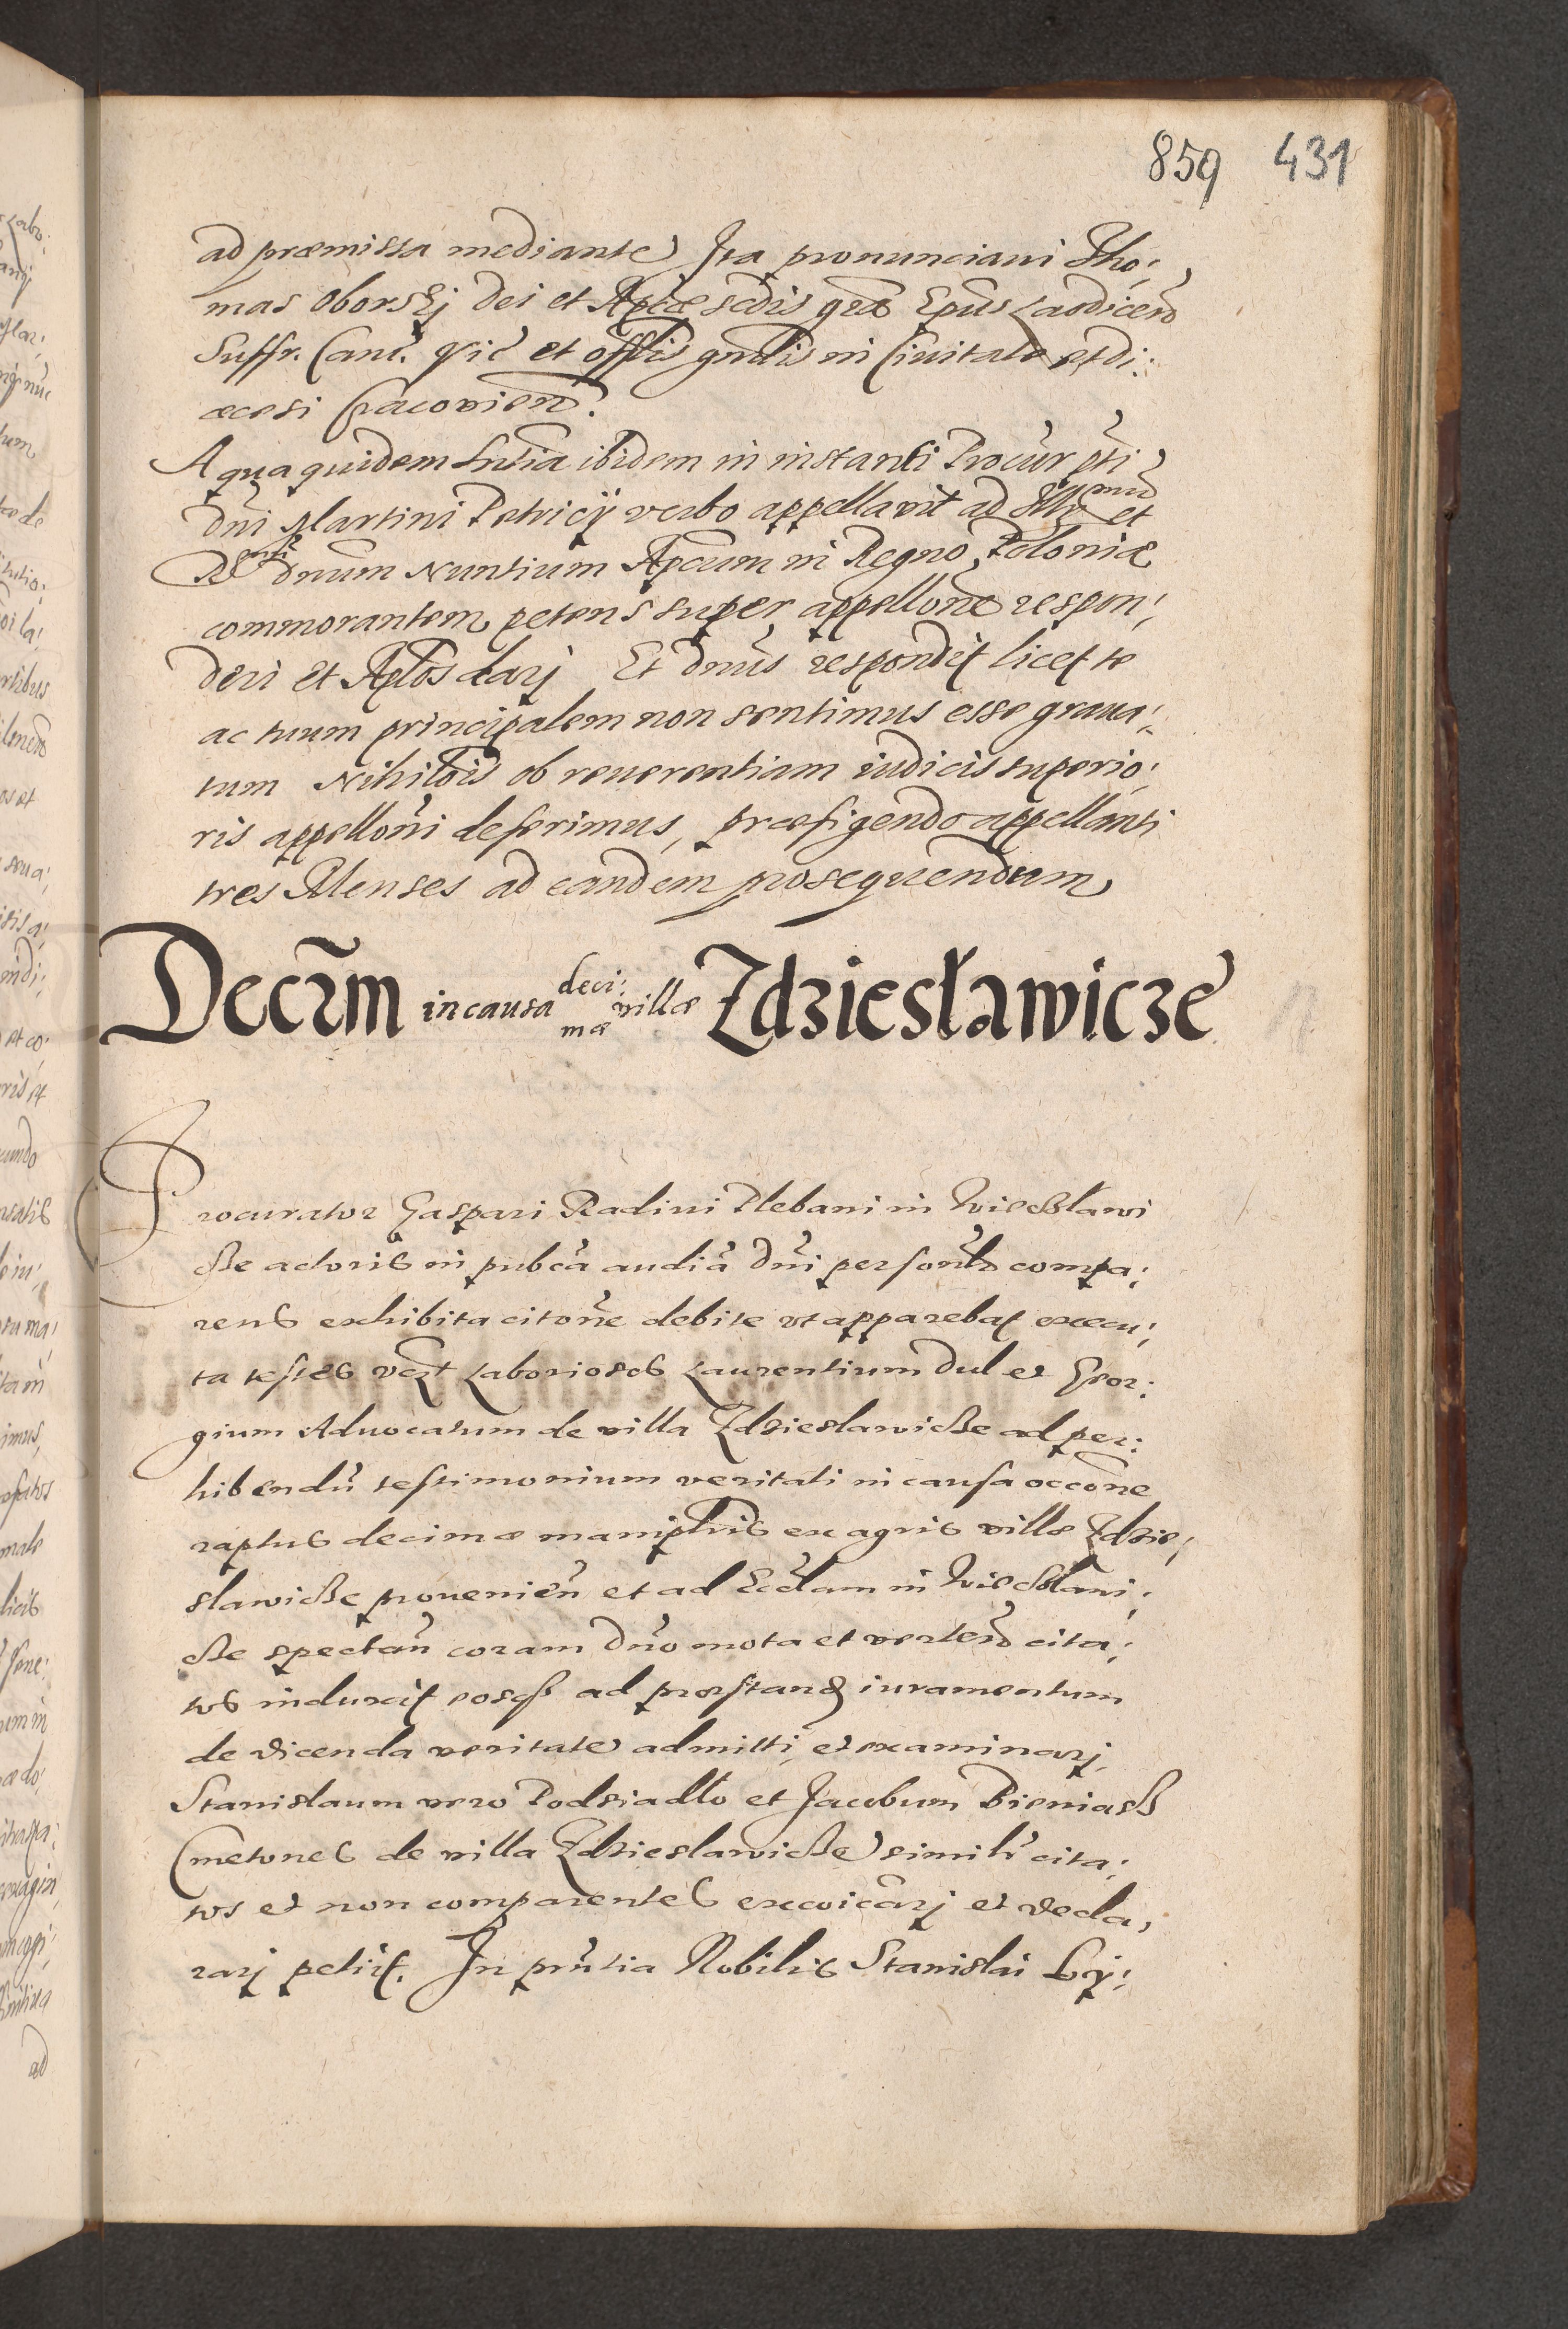 859 431
ad præmissa mediante Ita pronunciavi Tho:
mas Oborskj Dei et Aplicæ sedis gra Epus Laodicen
Suffr. Can. Vic et offlis gnalis in Civitate et di:
œcesi Cracovien.
A qua quidem sntia ibidem in instanti Procur pti
dni Martini Petricij verbo appellavit ad Illmum et
Rmum dnum Nuntium Aplcum in Regno Poloniæ
commorantem, petens super appellone respon:
deri et Aplos darj Et dnus respondit licet te
ac tuum principalem non sentimus esse grava:
tum Nihilois ob reverentiam iudicis superio:
ris appelloni deferimus, præfigendo appellanti
tres Menses ad eandem prosequendum
Decrm in causa deci: mæ villæ Zdziesławicze
Procurator Gaspari Radini Plebani in Wieclawi
cze actoris in pubca audia dni personlr compa:
rens exhibita citone debite ut apparebat execu:
ta testes vezt Laboriosos Laurentium Dul et Geor:
gium Advocatum de villa Zdzieslawicze ad per:
hibendu testimonium veritati in causa occone
raptus decimæ maniplris ex agris villæ Zdzie:
slawicze provenien et ad Ecclam in Wieclawi:
cze spectan coram dno mota et verten cita:
tos induxit eosq ad præstand iuramentum
de dicenda veritate admitti, et examinarj
Stanislaum vero Podsiadlo et Jacobum Bieniasz
Cmetones de villa Zdzieslawicze simili cita:
tos et non comparentes excoicarj et decla,
rarj petiit. In pntia Nobilis Stanislai